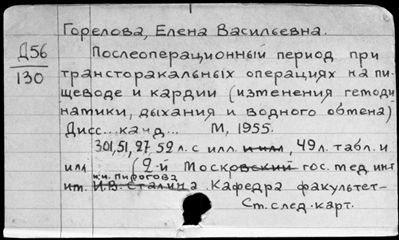 Горелова, Елена Васильевна.
Д56
130
Послеоперационный период при
трансторакальных операциях на пи-
щеводе и кардии (изменения гемоди
намики, дыхания и водного обмена)
Дисс...канд... М, 1955.
301,51,27 59 л. с илл. и илл, 49 л. табл. и
илл (2-й Московский гос. мед ин-т
им. И.В. Сталина. Кафедра факультет-
н.и. Пирогова
Ст. след. карт.